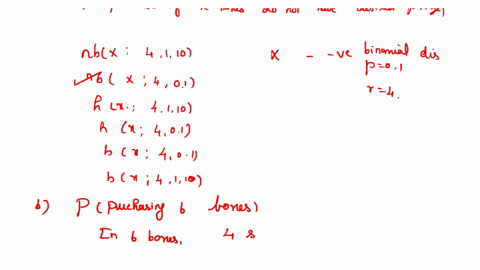 do not have
nb(x: 4,1,10)
nb(x; 4,0.1)
h(x; 4,1,10)
h(x; 4,0.1)
b(x; 4,0.1)
b(x; 4,1,10)
X - -ve binomial dis
p=0.1
r=4.
b) P(puchasing 6 bones)
In 6 bones, 4 s